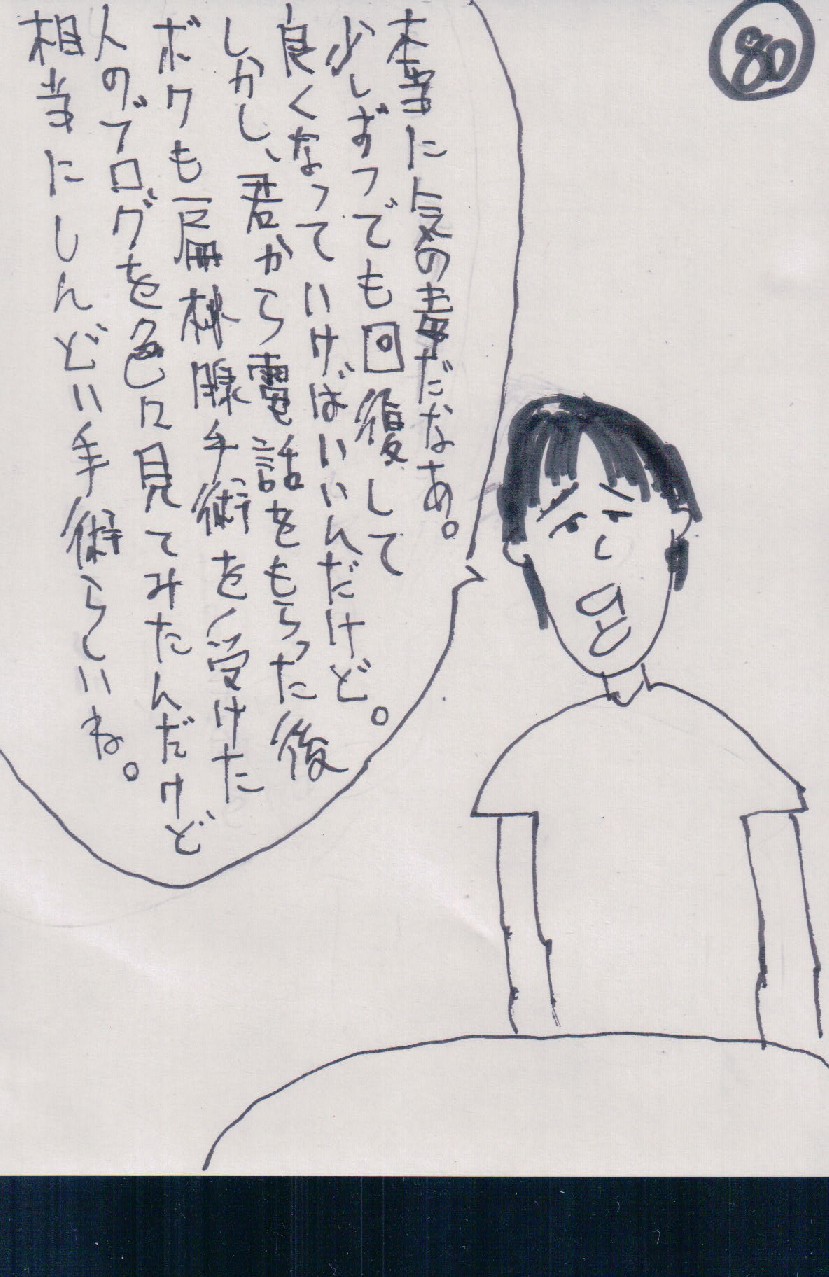 80
本当に気の毒だなあ。
少しずつでも回復して
良くなっていけばいいんだけど。
しかし、君から電話をもらった後
ボクも扁桃腺手術を受けた
人のブログを色々見てみたんだけど
相当にしんどい手術らしいね。